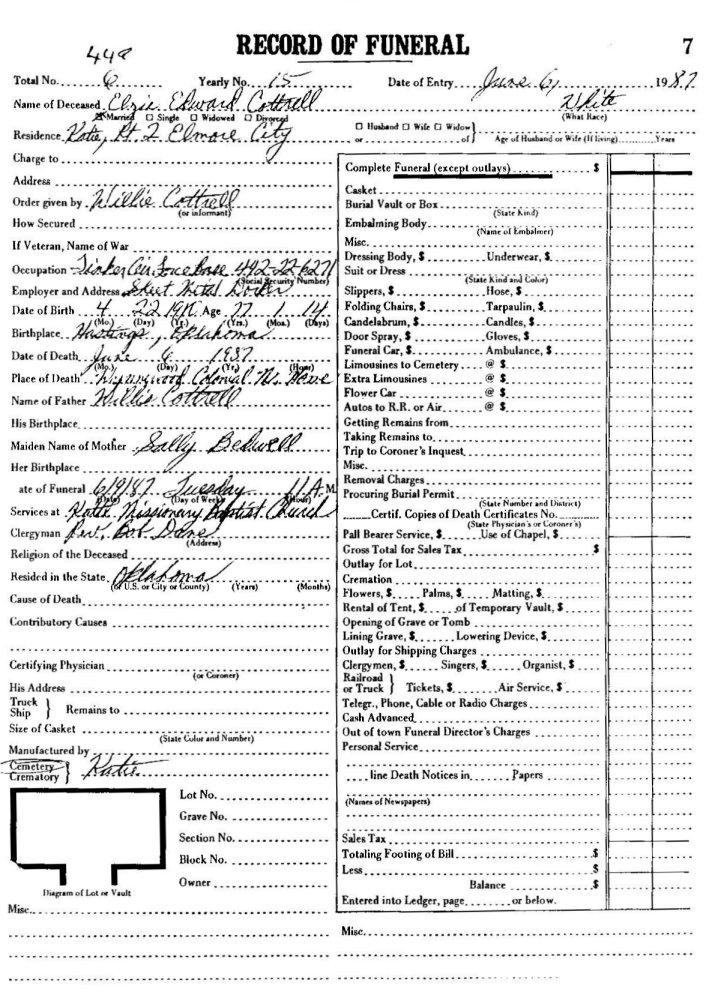 RECORD OF FUNERAL 7
448
Total No. 6 Yearly No. 15 Date of Entry June 6, 1987
Name of Deceased Elzie Edward Cottrell White
(What Race)
☒ Married ☐ Single ☐ Widowed ☐ Divorced
Residence Katie, Rt. 2 Elmore City
☐ Husband ☐ Wife ☐ Widow } or of } Age of Husband or Wife (If living) Years
Charge to
Address
Order given by Willie Cottrell
(or informant)
How Secured
If Veteran, Name of War
Occupation Tinker Air Force Base 442-22-6271
(Social Security Number)
Employer and Address Sheet Metal Worker
Date of Birth 4 22 1910 Age 77 1 14
(Mo.) (Day) (Yr.) (Yrs.) (Mos.) (Days)
Birthplace Hastings, Oklahoma
Date of Death June 6 1987
(Mo.) (Day) (Yr.) (Hour)
Place of Death Wynnewood Colonial Ns. Home
Name of Father Willie Cottrell
His Birthplace
Maiden Name of Mother Sally Bedwell
Her Birthplace
ate of Funeral 6/9/87 Tuesday 11 A M
(Date) (Day of Week) (Hour)
Services at Katie Missionary Baptist Church
Clergyman Rev. Bob Dane
(Address)
Religion of the Deceased
Resided in the State Oklahoma
(of U.S. or City or County) (Years) (Months)
Cause of Death
Contributory Causes
Certifying Physician
(or Coroner)
His Address
Truck
Ship } Remains to
Size of Casket
(State Color and Number)
Manufactured by
Cemetery
Crematory } Katie
Lot No.
Grave No.
Section No.
Block No.
Owner
Diagram of Lot or Vault
Misc.
Complete Funeral (except outlays) $
Casket
Burial Vault or Box
(State Kind)
Embalming Body
(Name of Embalmer)
Misc.
Dressing Body, $ Underwear, $
Suit or Dress
(State Kind and Color)
Slippers, $ Hose, $
Folding Chairs, $ Tarpaulin, $
Candelabrum, $ Candles, $
Door Spray, $ Gloves, $
Funeral Car, $ Ambulance, $
Limousines to Cemetery @ $
Extra Limousines @ $
Flower Car @ $
Autos to R.R. or Air @ $
Getting Remains from
Taking Remains to
Trip to Coroner's Inquest
Misc.
Removal Charges
Procuring Burial Permit
(State Number and District)
Certif. Copies of Death Certificates No.
(State Physician's or Coroner's)
Pall Bearer Service, $ Use of Chapel, $
Gross Total for Sales Tax $
Outlay for Lot
Cremation
Flowers, $ Palms, $ Matting, $
Rental of Tent, $ of Temporary Vault, $
Opening of Grave or Tomb
Lining Grave, $ Lowering Device, $
Outlay for Shipping Charges
Clergymen, $ Singers, $ Organist, $
Railroad
or Truck } Tickets, $ Air Service, $
Telegr., Phone, Cable or Radio Charges
Cash Advanced
Out of town Funeral Director's Charges
Personal Service
line Death Notices in Papers
(Names of Newspapers)
Sales Tax
Totaling Footing of Bill $
Less $
Balance $
Entered into Ledger, page or below.
Misc.